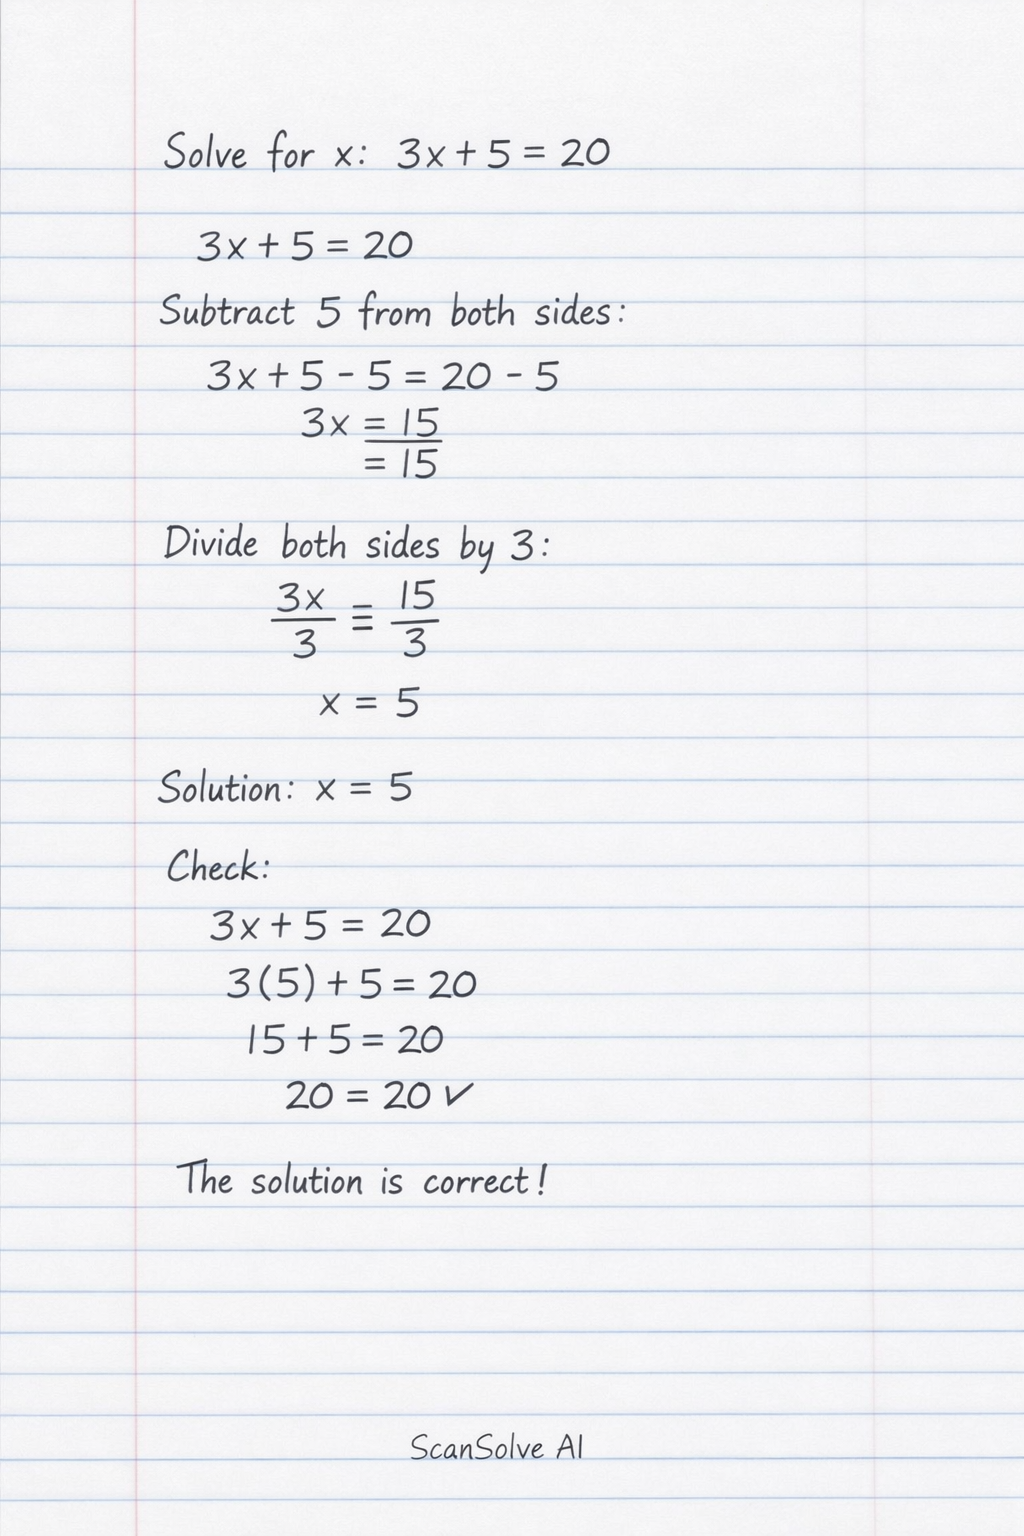 Solve for x: 3x + 5 = 20
3x + 5 = 20
Subtract 5 from both sides:
3x + 5 - 5 = 20 - 5
3x = 15
= 15
Divide both sides by 3:
3x/3 ≡ 15/3
x = 5
Solution: x = 5
Check:
3x + 5 = 20
3(5) + 5 = 20
15 + 5 = 20
20 = 20 ✓
The solution is correct!
ScanSolve AI